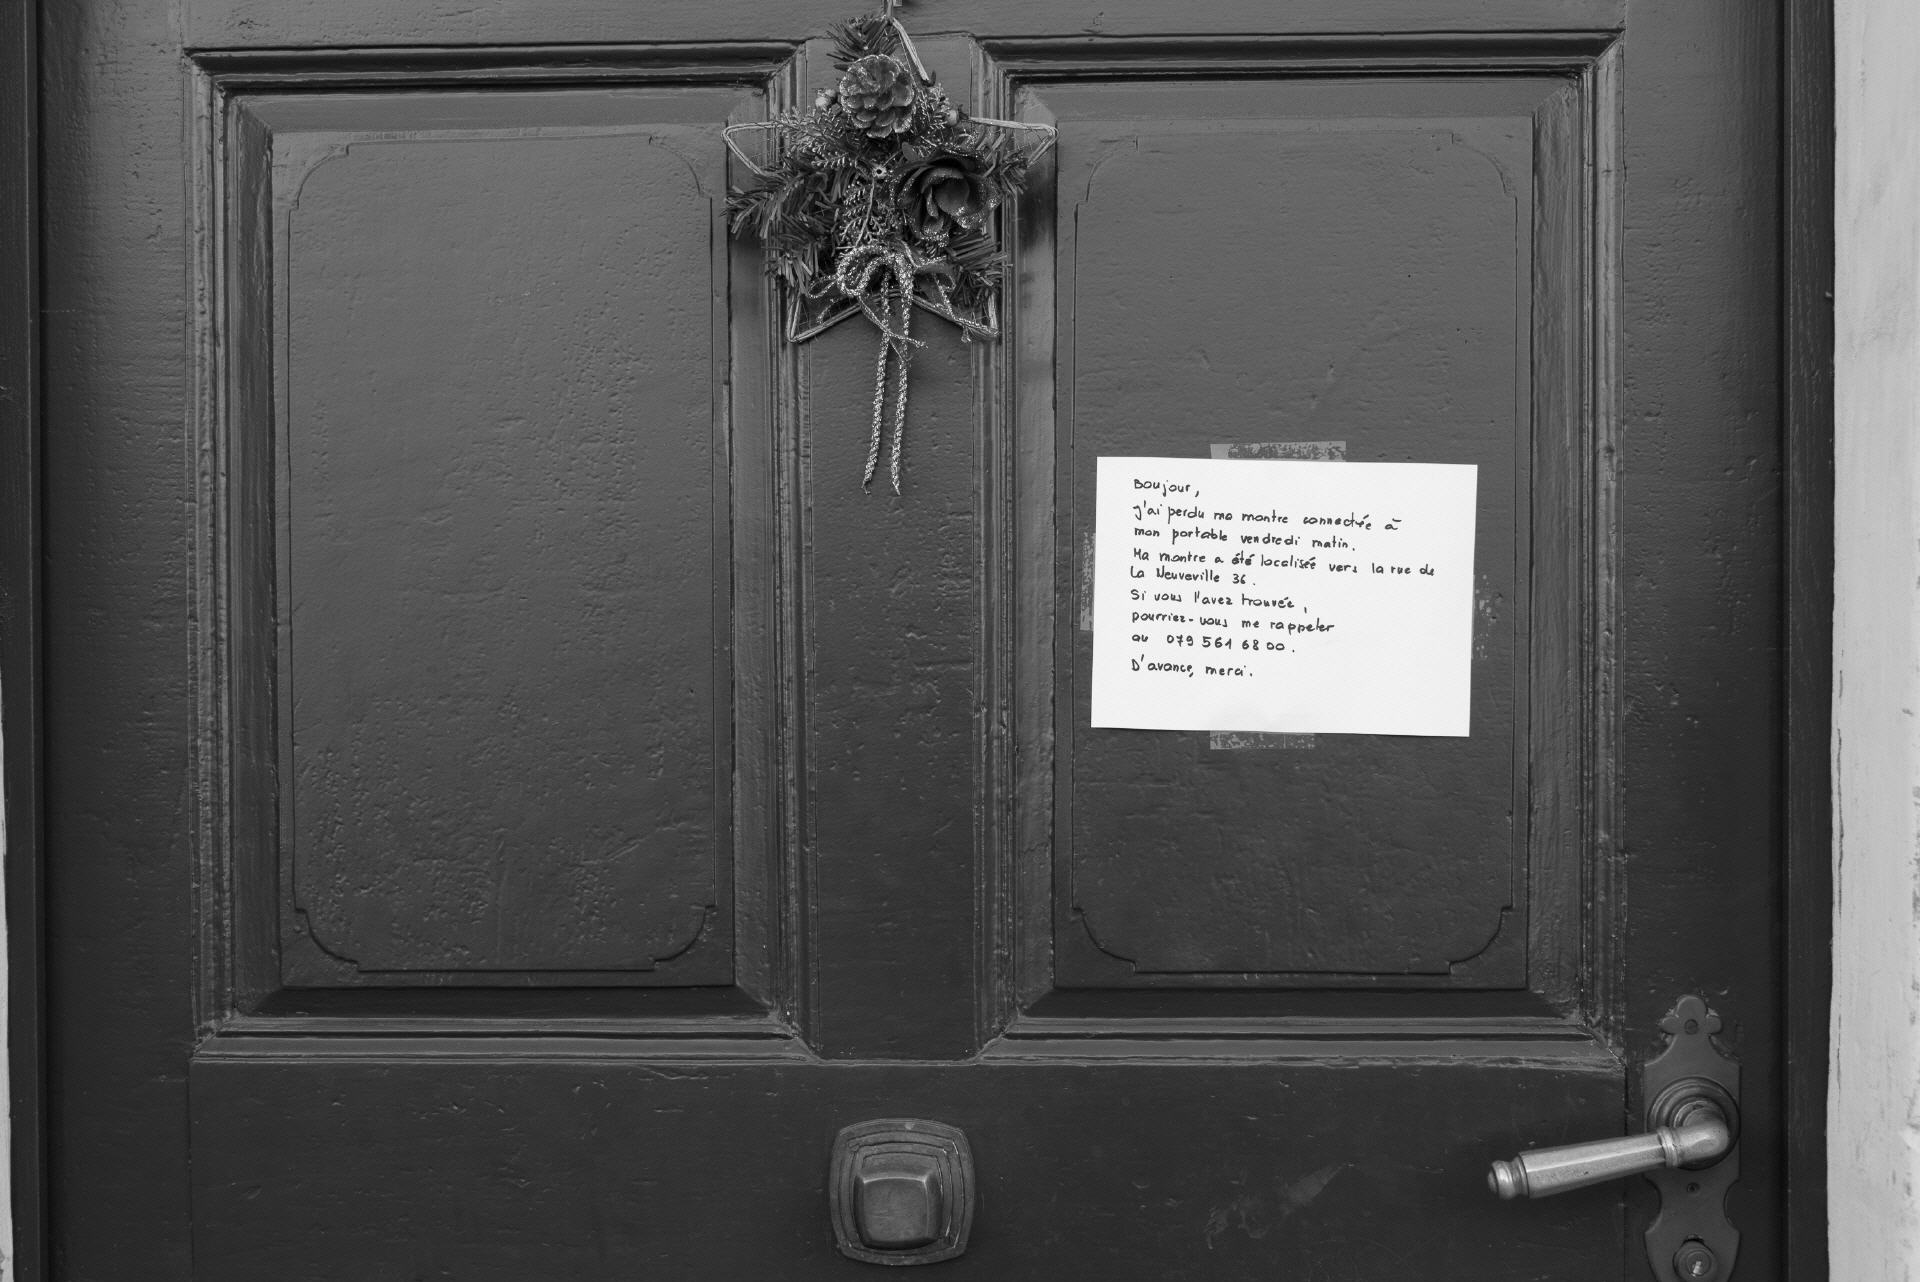 Boujour,
j'ai perdu ma montre connectée à
mon portable vendredi matin.
Ma montre a été localisée vers la rue de
La Neuveville 36.
Si vous l'avez trouvée,
pourriez-vous me rappeler
au 079 561 68 00.
D'avance, merci.